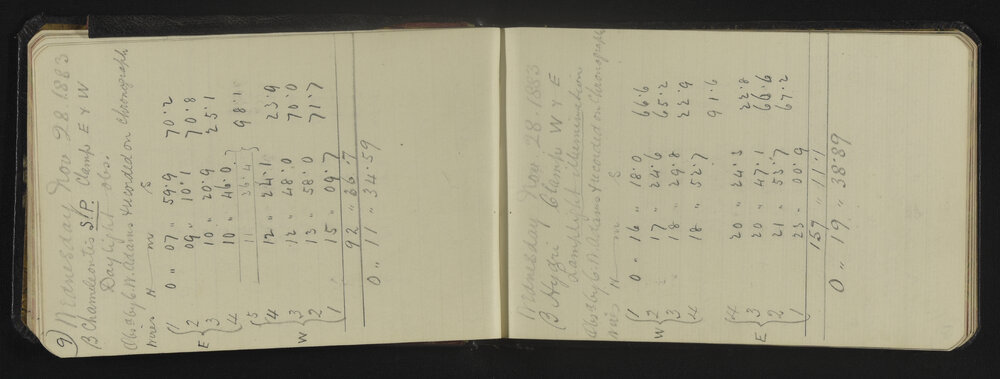 9) Wednesday Nov 28. 1883
β Chamaeleontis S.P. Clamps E & W
Daylight obs.
Obsd by C.W. Adams & recorded on Chronograph
Wires H m S
1 0 " 07 " 59.9 70.2
2 09 " 10.1 70.8
E 3 10 " 20.9 25.1
4 10 " 46.0
5 11 " 36.4 98.1
4 12 " 24.1 23.9
W 3 12 " 48.0 70.0
2 13 " 58.0 71.7
1 15 " 09.7
92 " 36.7
0 " 11 " 34.59
Wednesday Nov 28. 1883
β Hydri Clamps W & E
Lamplight Illumination
Obsd by C.W. Adams & recorded on Chronograph
Wires H m S
1 0 " 16 " 18.0 66.6
W 2 17 " 24.6 65.2
3 18 " 29.8 22.9
4 18 " 52.7
91.6
4 20 " 24.3 22.8
E 3 20 " 47.1 66.6
2 21 " 53.7 67.2
1 23 " 00.9
157 " 11.1
0 " 19 " 38.89